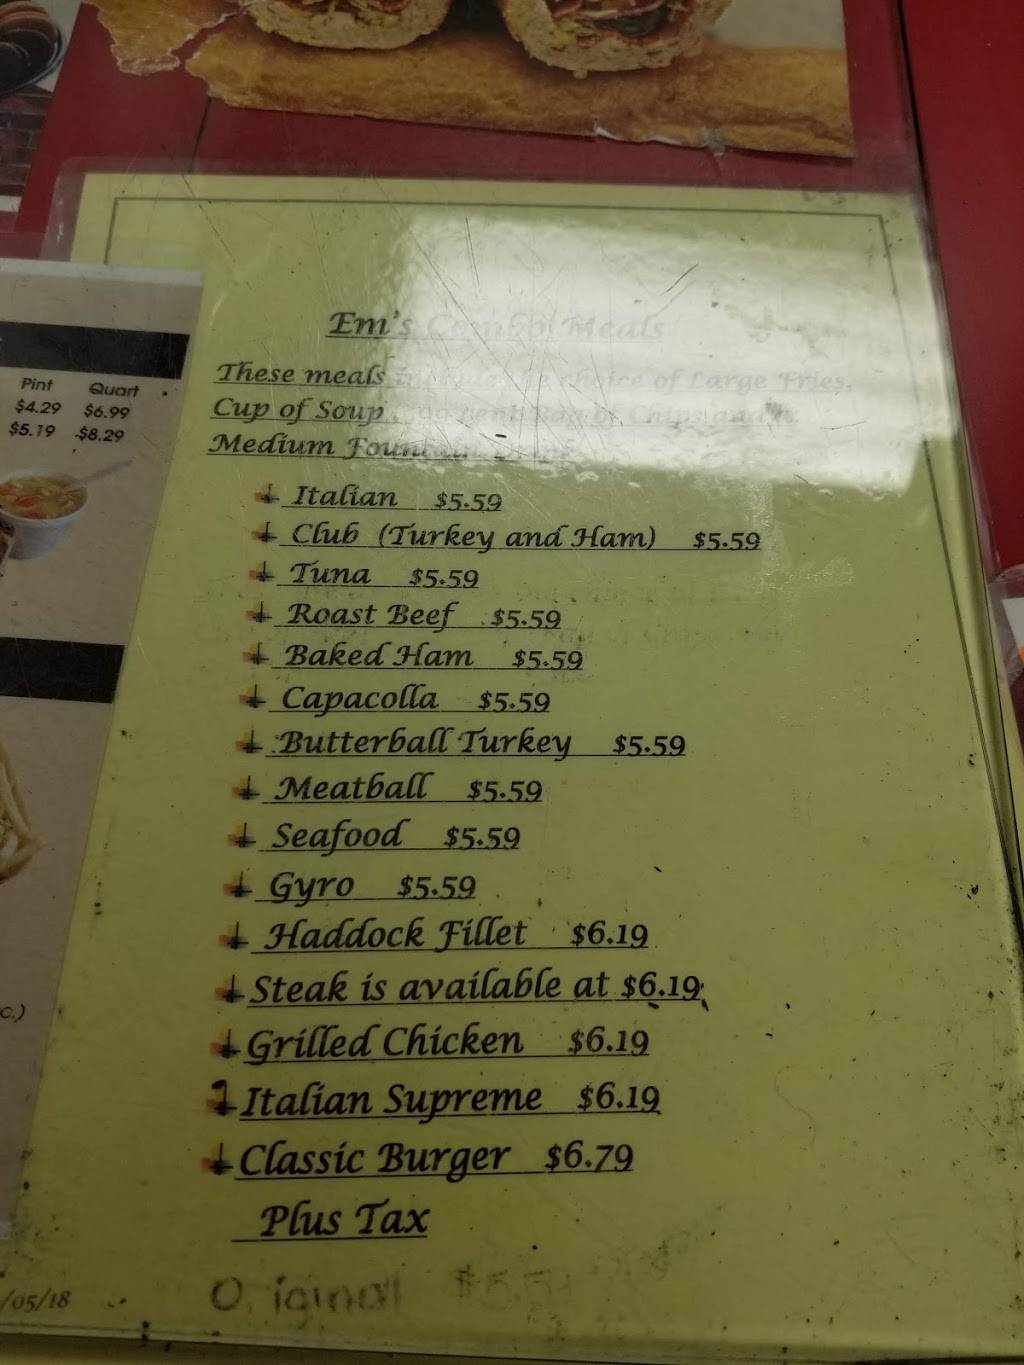 Em's Combo Meals
These meals include the choice of Large Fries,
Cup of Soup, Bag of Chips and a
Medium Fountain Drink
Italian $5.59
Club (Turkey and Ham) $5.59
Tuna $5.59
Roast Beef $5.59
Baked Ham $5.59
Capacolla $5.59
Butterball Turkey $5.59
Meatball $5.59
Seafood $5.59
Gyro $5.59
Haddock Fillet $6.19
Steak is available at $6.19
Grilled Chicken $6.19
Italian Supreme $6.19
Classic Burger $6.79
Plus Tax
Original
Pint Quart
$4.29 $6.99
$5.19 $8.29
c.)
/05/18